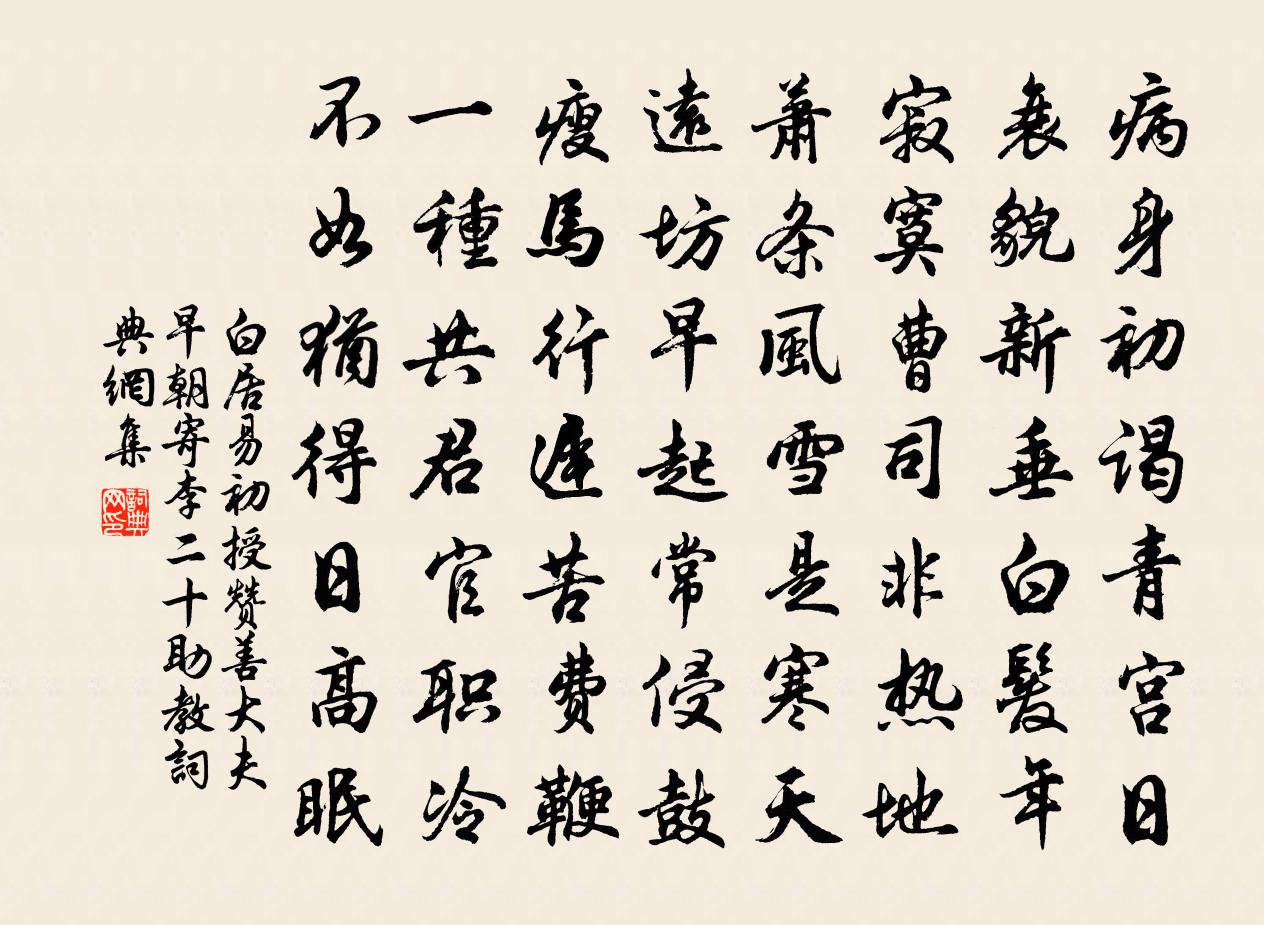 病身初谒青宫日
衰貌新垂白髮年
寂寞曹司非热地
萧条風雪是寒天
遠坊早起常侵鼓
瘦馬行遲苦費鞭
一種共君官职冷
不如猶得日高眠
白居易初授贊善大夫
早朝寄李二十助教詞
典網集
詞典
网印